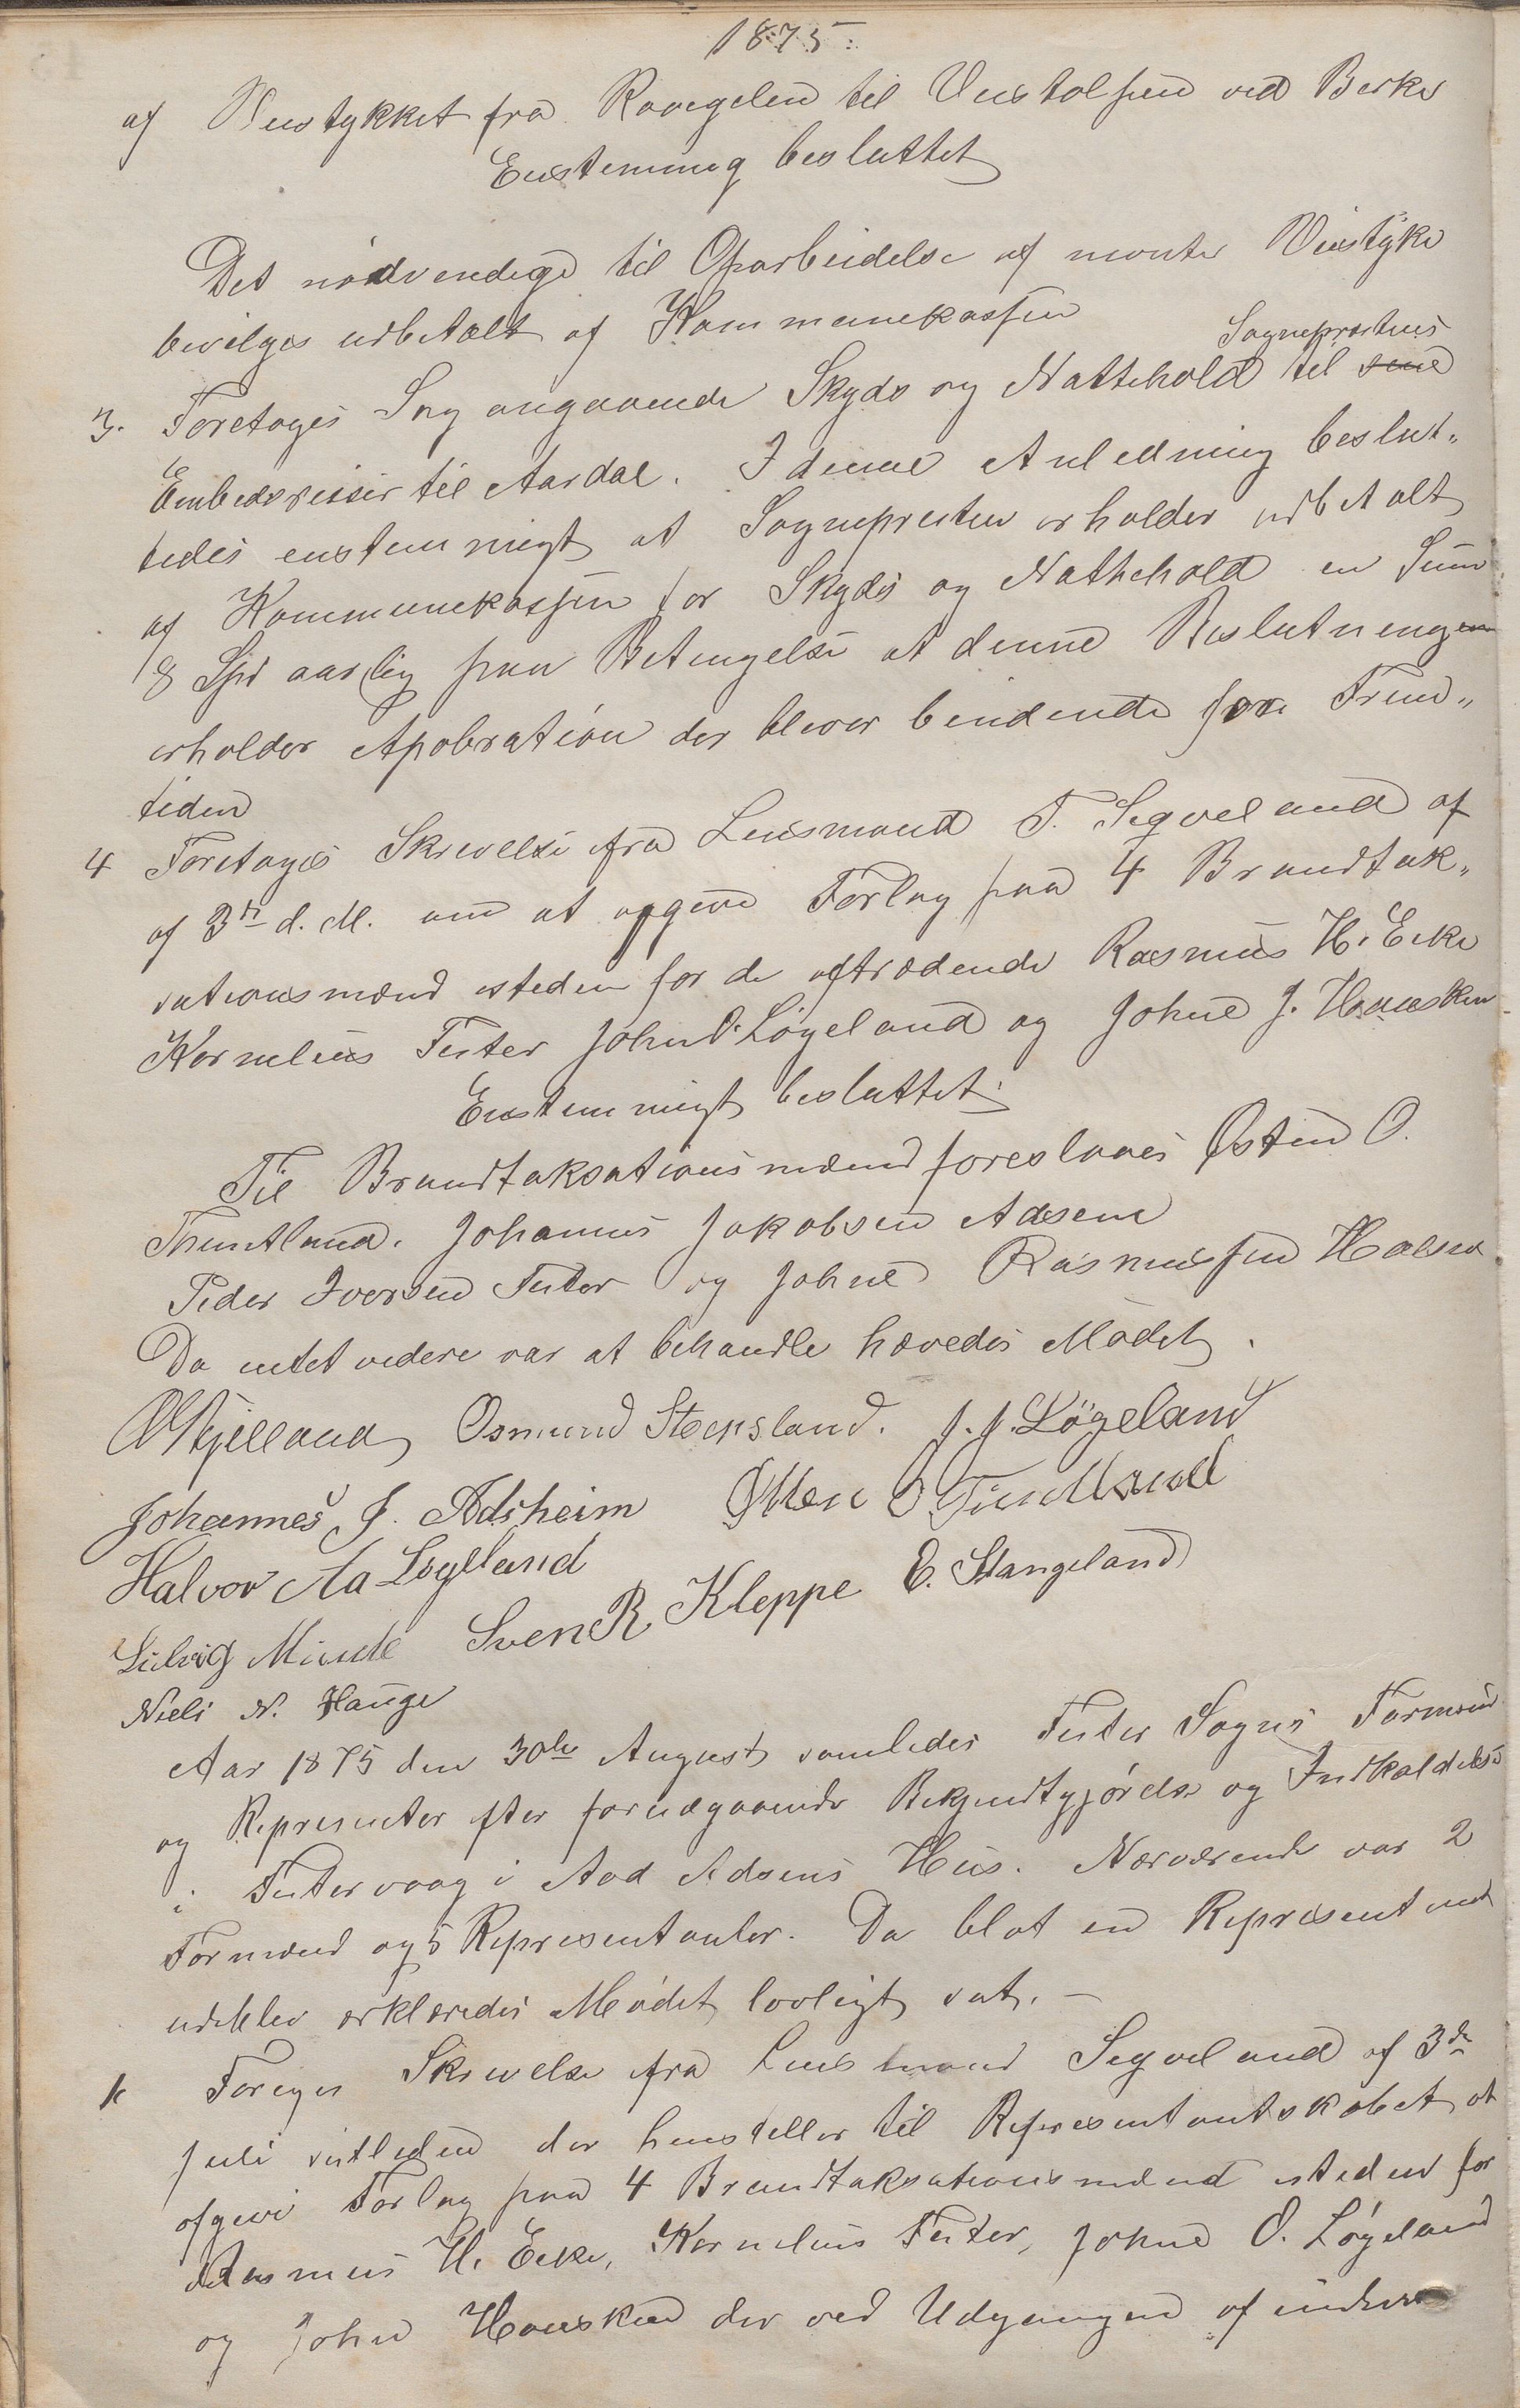 1875.
af Veistykket fra Ravngelen til Veistolpen ved Berke
Eenstemmig besluttet
Det nødvendige til Oparbeidelse af Veistyke
bevilges udbetalt af Kommunekassen
Sogneprestens
3. Foretoges Sag angaaende Skyds og Nattehold til sine
Embedsreiser til Aardal. I denne Anledning beslut„
tedes enstemmigt at Sognepresten erholder udbetalt
af Kommunekassen for Skyds og Nattehold en Sum
8 Spd aarlig paa Betingelse at denne Beslutningen
erholder Apobration der bliver bindende for Frem„
tiden
4 Foretoges Skrivelse fra Lensmand T. Segveland af
af 3die d. M. om at opgive Forlag paa 4 Brandtak„
sationsmænd isteden for de aftrædende Rasmus H. Eike
Kornelius Fister John O. Løgeland og Johne J. Hausken
Enstemmigt besluttet:
Til Brandtaksationsmænd foreslaaes Østen O.
Tuntland. Johannes Jakobsen Adsem
Peder Iversen Fister og Johne Rasmussen Halsne
Da intet videre var at behandle hævedes Mødet.
O Kjelland Osmund Stensland. J. J. Løgeland
Johannes J. Adsheim Østen O Tuntland
Halvor Aa Løgeland
Ludvig Minde Sven R Kleppe E. Stangeland
Niels N. Hauge
Aar 1875 den 30te August samledes Fister Sogns Formænd
og Represnter efter forudgaaende Bekjendtgjørelse og Indkaldelse
i Fistervaag i Aad Adsens Hus. Nærværende var 2
Formænd og 5 Representanter. Da blot en Representant
udeblev erklæredes Mødet lovligt sat. —
1 Foreges Skrivelse fra Lensmand Segveland af 3die
Juli sidtleden der henstiller til Representantskabet at
afgive Forlag paa 4 Brandtaksationsmænd isteden for
Rasmus H. Eike, Kornelius Fister, Johne O. Løgeland
og John Hausken der ved Udgangen af